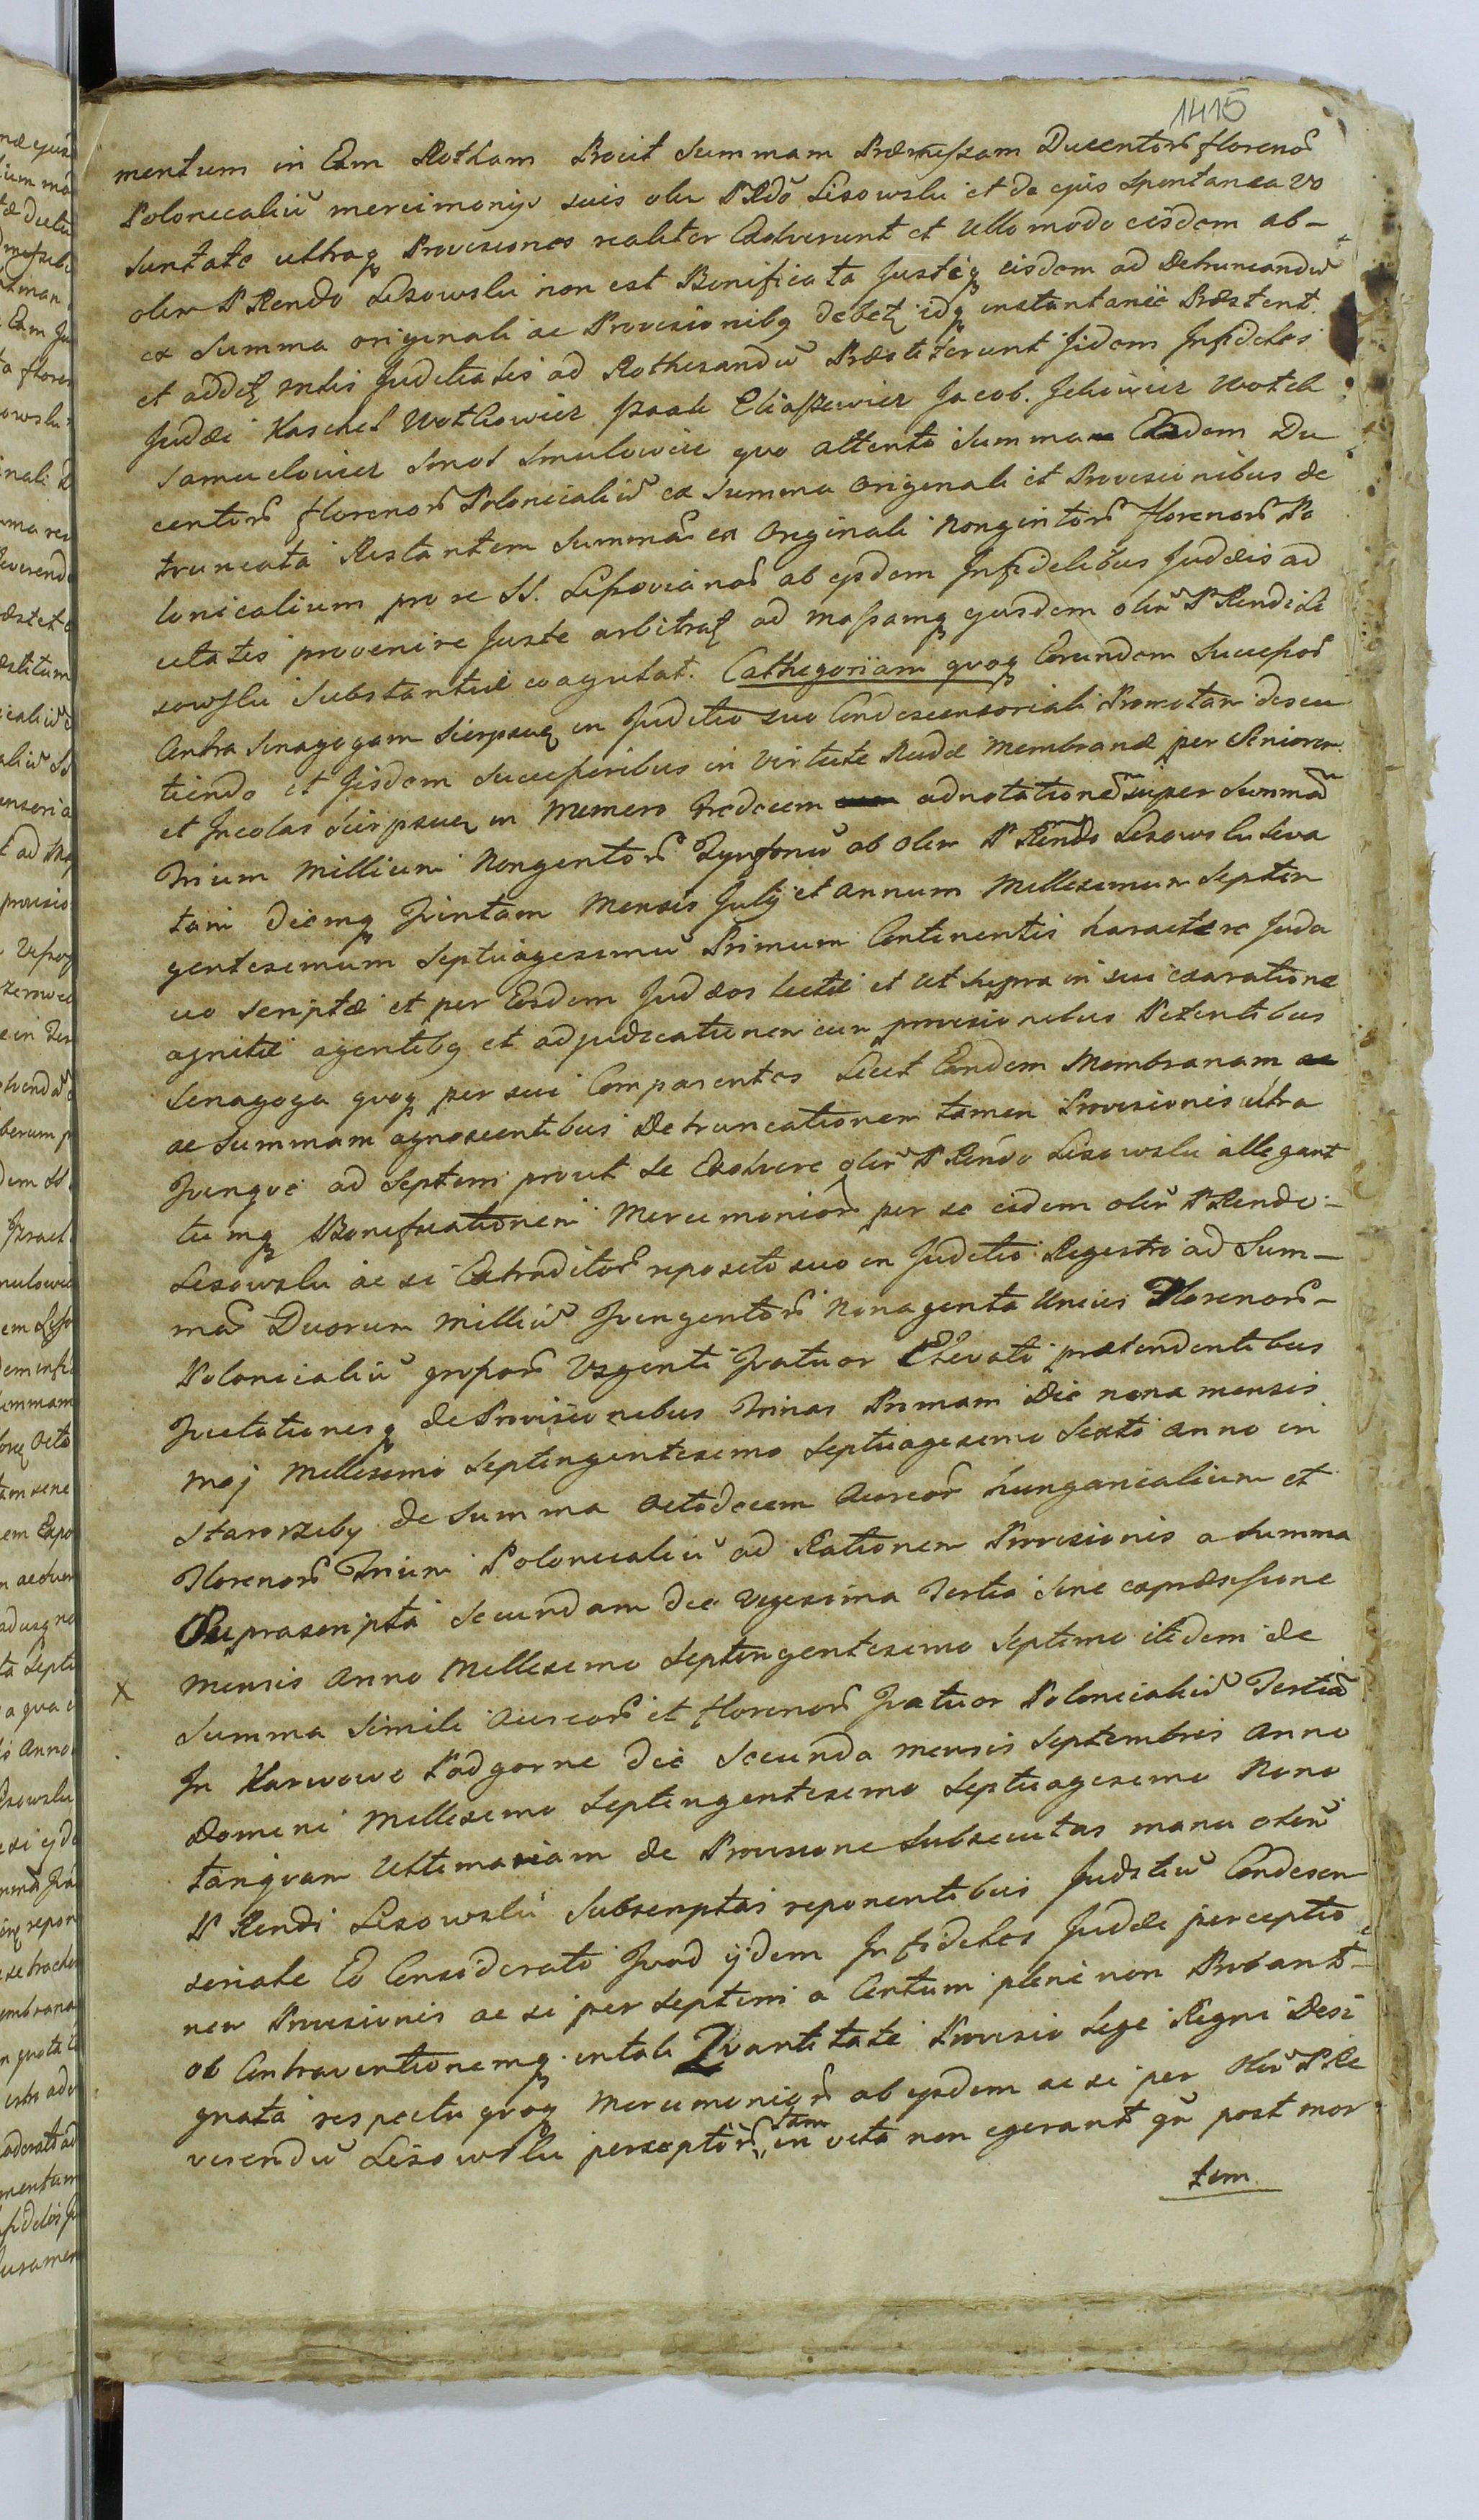 1415
mentum in Eam Rotham Prout Summam Præmissam Ducentorũ florenorũ
Polonicaliũ mercimonijs suis olim P Rdo Lisowski et de ejus Spontanea vo
luntate ultraq Provisiones realiter Exolverunt et Ullo modo eisdem ab-
olim P Rendo Lisowski non est Bonificata Justeq eisdem ad Detruncandũ
ex Summa originali ac Provisionibq debet idq instantanie Præstent.
et addet Judicialis ad Rothisandũ Præstiterunt Fidem Infideles
Judæi Haschel Wolkowicz Jzaak Eliaszewicz Jacob. Jelowicz Wolek
Samuelowicz Smol Smulowicz quo attento Summa Eadem Du
centorũ florenorũ Polonicaliũ ex Summa Originali et Provisionibus de
truncata Restantem Summã ex Originali Nongintorũ florenorũ Po
lonicalium pro re SS. Lissovianorũ ab ejsdem Infidelibus Judæis ad
citatis provenire Juste arbitrat ad massamq ejusdem olim P Rendi Li
sowski Substantiæ coagulat. Cathegoriam quoq Eorundem Successorũ
Contra Sinagogam Sierpscen in Judicio suo Condescensoriali Promotam discu
tiendo et Jisdem Successoribus in Virtute Nudæ Membranæ per Seniores
et Incolas Sierpscen in Numero Tredecem adnotatione super Summã
Trium Millium Nongentorũ Tynfonũ ab olim P Rendo Lisowski Leva
tam diemq Quintam Mensis Julij et Annum Millesimum Septin
gentesimum Septuagesimũ Primum Continentis haractere Juda
ico scriptæ et per Eosdem Judæos lectæ et Ut supra in sui exaratione
agnitæ agentibq et adjudicationem cum provisionibus Petentibus
Senagoga quoq per sui Comparentes Licet Eandem Membranam
ac Summam agnoscentibus Detruncationem tamen Provisionis ultra
Quinque ad Septem prout se Exolvere olim P Rendo Lisowski allegant
tumq Bonificationem Mercimoniorũ per se eidem olim P Rendo-
Lisowski ac si Extraditorũ reposito suo in Judicio Regestro ad Sum-
mã Duorum Milliũ Quingentorũ Nonaginta Unius Florenorũ-
Polonicaliũ grossorũ Viginti Quatuor Elevati prætendentibus
Quietationesq de Provisionibus Trinas Primam Die nona mensis
Maj Millesimo Septingentesimo Septuagesimo Sexto anno in
Starorzeby de Summa Octodecem Aureorũ hungaricalium et
Florenorũ Trium Polonicaliũ ad Rationem Provisionis a Summa
Suprascripta Secundam die vigesima Tertia Sine expræssione
Mensis Anno Millesimo Septingentesimo Septimo itidem de
x
Summa Simili Aureorũ et florenorũ Quatuor Polonicaliũ Tertiã
In Karwowo Padgorne die Secunda mensis Septembris Anno
Domini Millesimo Septingentesimo Septuagesimo Nono
tanquam Ultimariam de Provisione Subsecutas manu olim
P Rendi Lisowski Subscriptas reponentibus Judiciũ Condescen
soriale Eo Considerato Quod ijdem Infideles Judæi perceptio
nem Provisionis ac si per Septem a Centum plene non Probant-
ob Contraventionemq in tali Quantitate Provisio Lege Regni Desi
gnata respectu quoq Mercimoniorũ ab ejsdem ac si per Olim P Re
verendũ Lisowski perceptorũ tam in vita non egerant qm post mor
tem